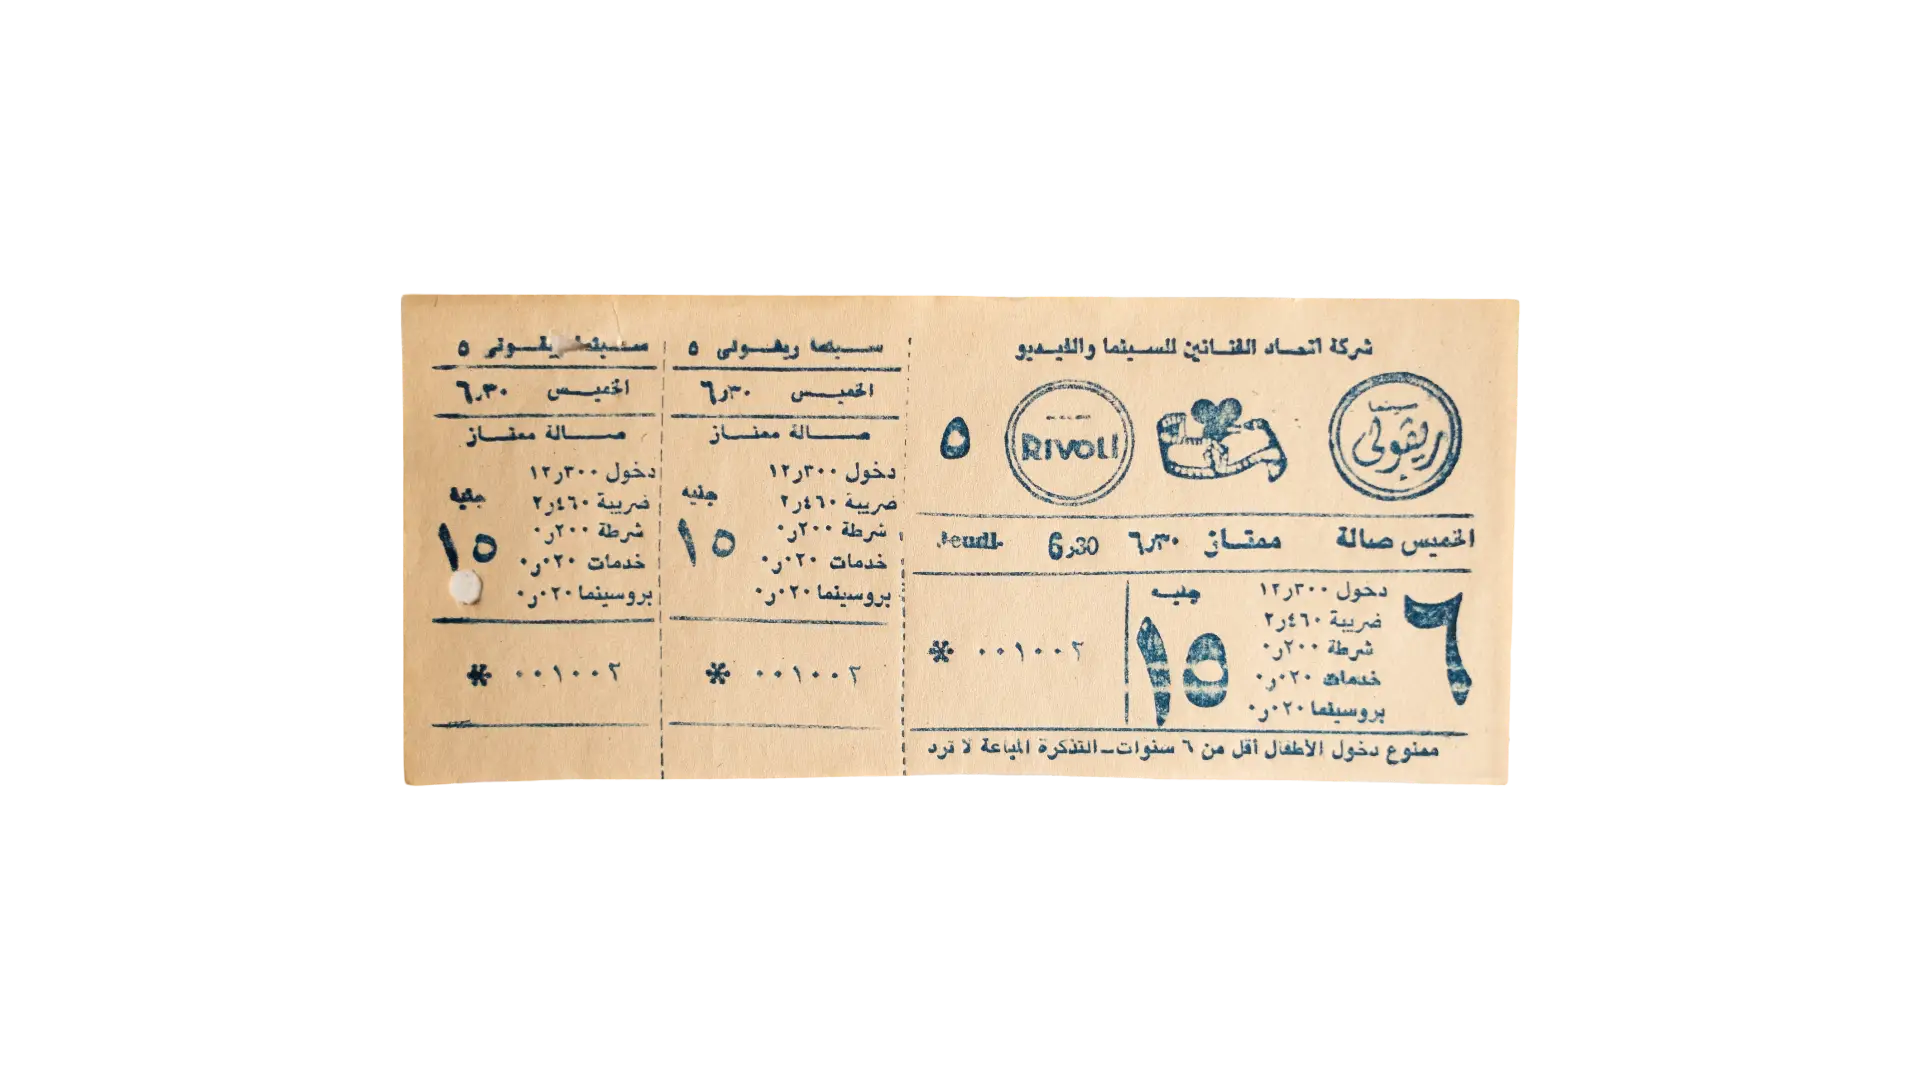 شركة اتحاد الفنانين للسينما والفيديو
سينما
ريڤولي
RIVOLI
٥
الخميس صالة ممتاز ٦٫٣٠ 6,30 Jeudi
٦
دخول ١٢٫٣٠٠
ضريبة ٢٫٤٦٠
شرطة ٠٫٢٠٠
خدمات ٠٫٠٢٠
بروسينما ٠٫٠٢٠
جنيه
١٥
٠٠١٠٠٢ *
ممنوع دخول الأطفال أقل من ٦ سنوات - التذكرة المباعة لا ترد
سينما ريفولى ٥
الخميس ٦٫٣٠
صالة ممتاز
دخول ١٢٫٣٠٠
ضريبة ٢٫٤٦٠
شرطة ٠٫٢٠٠
خدمات ٠٫٠٢٠
بروسينما ٠٫٠٢٠
جنيه
١٥
٠٠١٠٠٢ *
سينما ريفولى ٥
الخميس ٦٫٣٠
صالة ممتاز
دخول ١٢٫٣٠٠
ضريبة ٢٫٤٦٠
شرطة ٠٫٢٠٠
خدمات ٠٫٠٢٠
بروسينما ٠٫٠٢٠
جنيه
١٥
٠٠١٠٠٢ *